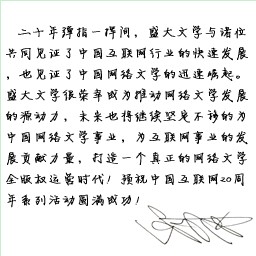 二十年弹指一挥间，盛大文学与诸位
共同见证了中国互联网行业的快速发展
，也见证了中国网络文学的迅速崛起。
盛大文学很荣幸成为推动网络文学发展
的源动力，未来也将继续坚定不移的为
中国网络文学事业，为互联网事业的发
展贡献力量，打造一个真正的网络文学
全版权运营时代！预祝中国互联网20周
年系列活动圆满成功！